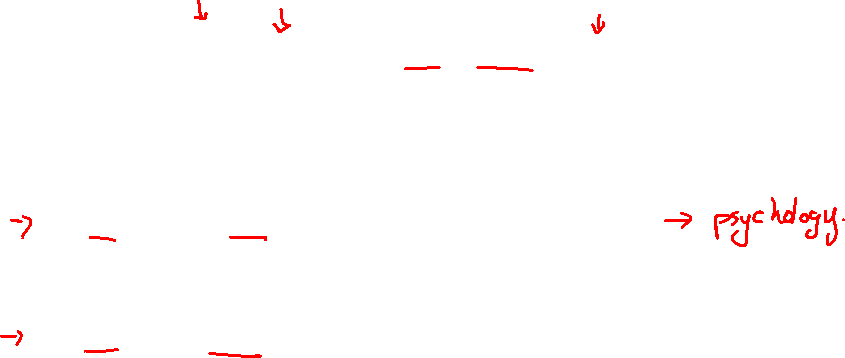 → psychology.